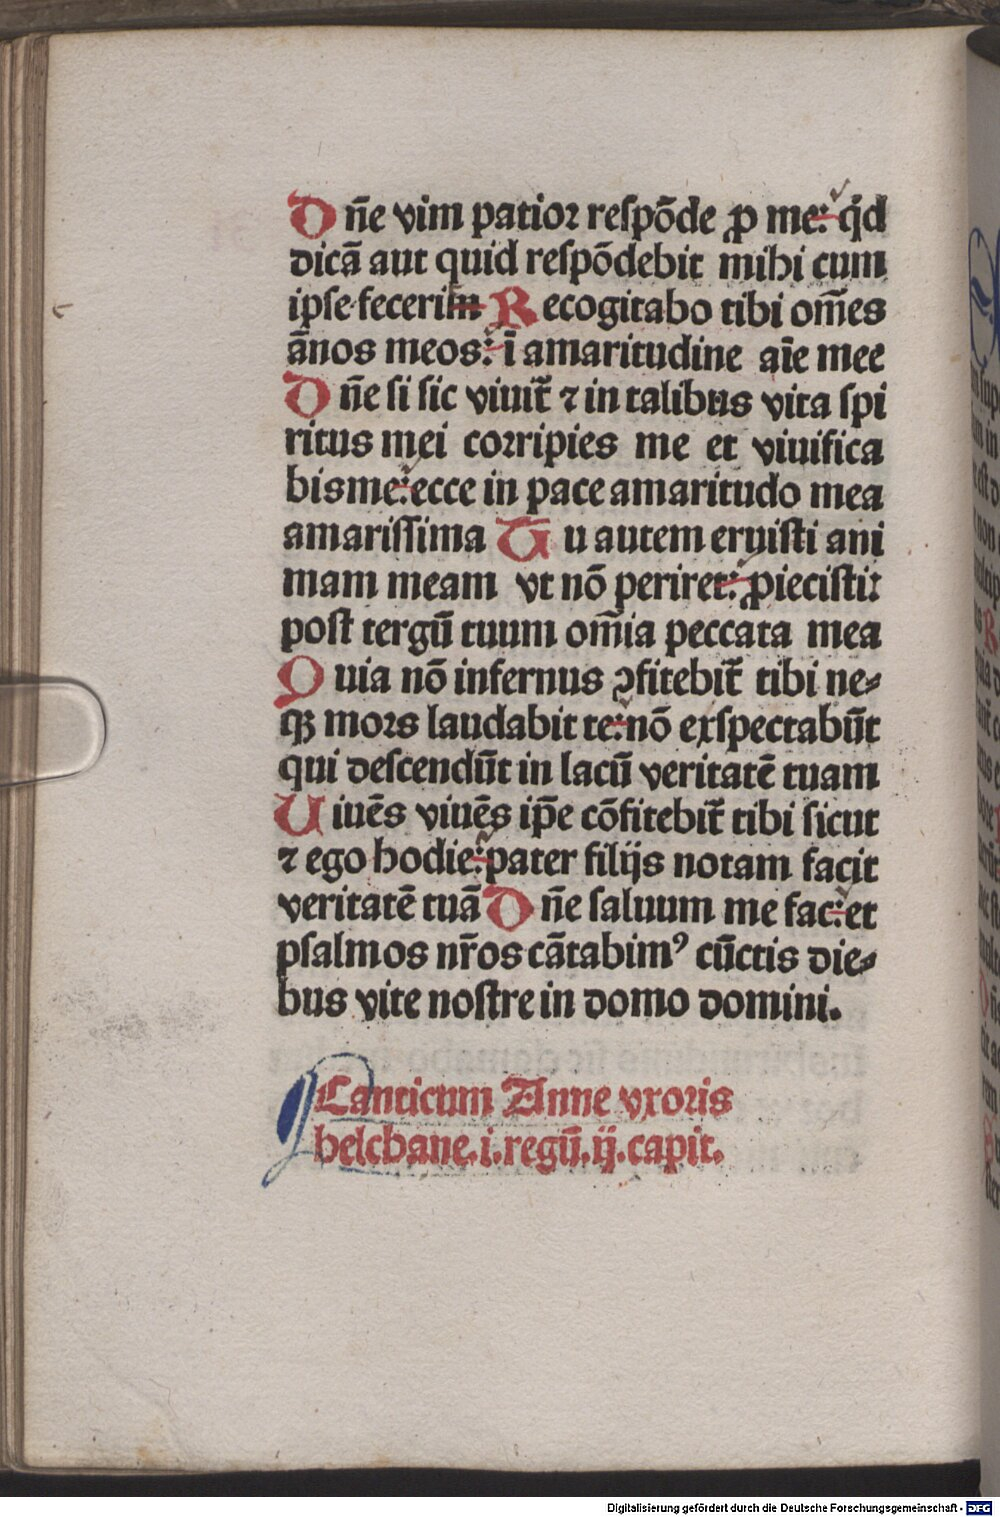 Dñe vim patior respõde ꝓ me: qͥd
dicã aut quid respõdebit mihi cum
ipse fecerim Recogitabo tibi om̃es
ãnos meos: ĩ amaritudine aĩe mee
Dñe si sic viuit̃ ⁊ in talibus vita spi
ritus mei corripies me et viuifica
bis me: ecce in pace amaritudo mea
amarissima Tu autem eruisti ani
mam meam vt nõ periret: ꝓiecisti:
post tergũ tuum om̃ia peccata mea
Quia nõ infernus ꝯfitebit̃ tibi ne⸗
qꝫ mors laudabit te: nõ exspectabũt
qui descendũt in lacũ veritatẽ tuam
Uiuẽs viuẽs ip̃e cõfitebit̃ tibi sicut
⁊ ego hodie: pater filijs notam facit
veritatẽ tuã Dñe saluum me fac: et
psalmos nr̃os cãtabimꝰ cũctis die⸗
bus vite nostre in domo domini.
Canticum Anne vxoris
helchane. i. regũ. ij. capit.
Digitalisierung gefördert durch die Deutsche Forschungsgemeinschaft - DFG